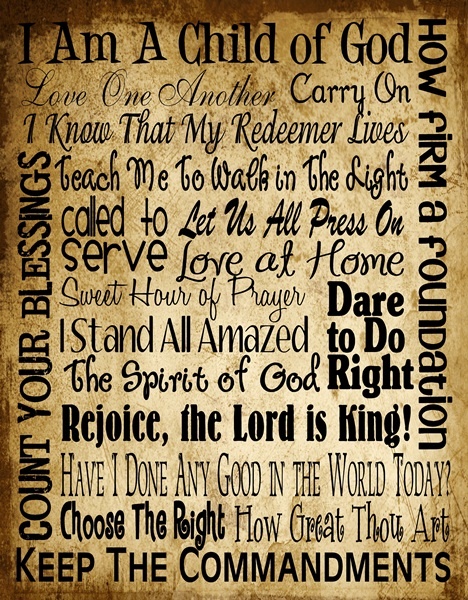 I Am A Child of God
Love One Another Carry On
I Know That My Redeemer Lives
Teach Me To Walk in The Light
called to serve
Let Us All Press On
Love at Home
Sweet Hour of Prayer
Dare to Do Right
I Stand All Amazed
The Spirit of God
Rejoice, the Lord is King!
Have I Done Any Good in the World Today?
Choose The Right How Great Thou Art
Keep The Commandments
Count Your Blessings
How Firm a Foundation